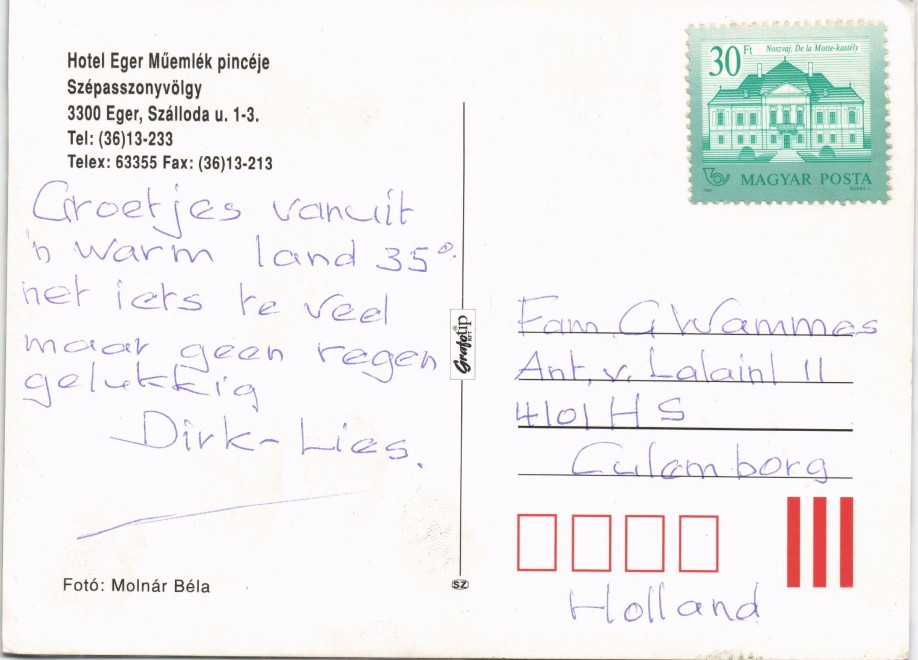 Hotel Eger Műemlék pincéje
Szépasszonyvölgy
3300 Eger, Szálloda u. 1-3.
Tel: (36)13-233
Telex: 63355 Fax: (36)13-213
Groetjes vanuit
'n warm land 35°
net iets te veel
maar geen regen
gelukkig
Dirk-Lies.
Fotó: Molnár Béla
Grafotip
SZ
30 Ft
Noszvaj, De la Motte-kastély
MAGYAR POSTA
Fam G Wammes
Ant. v. Lalainl 11
4101 HS
Culemborg
Holland